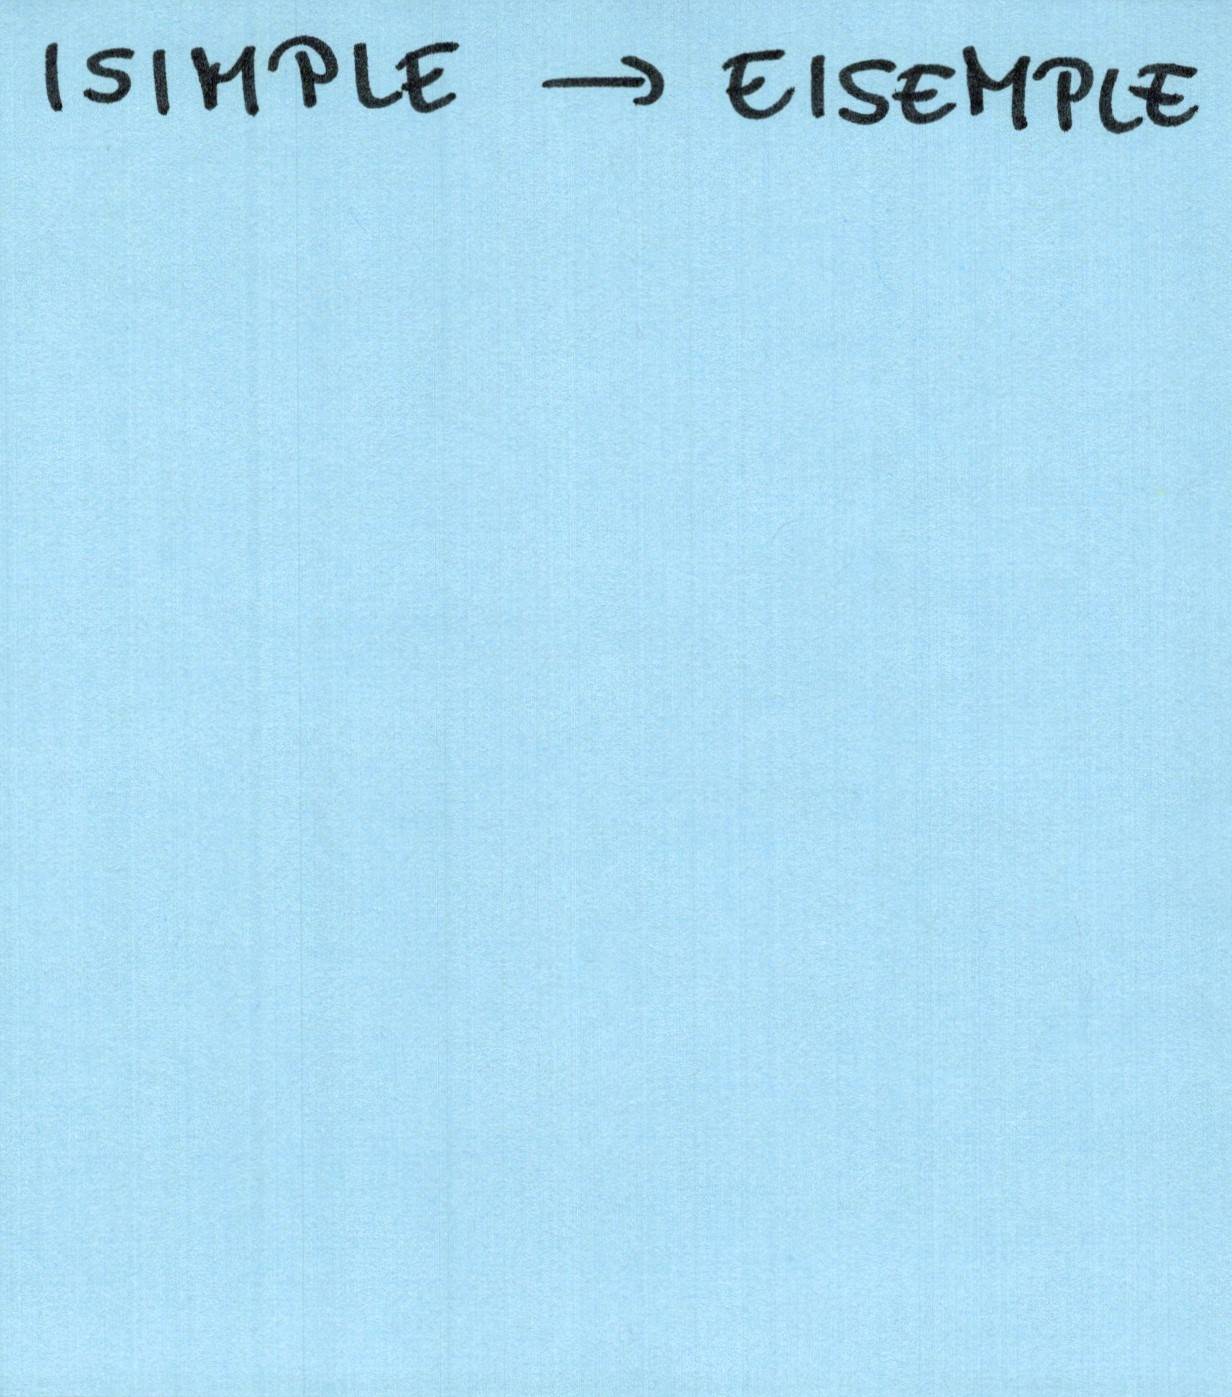 ISIMPLE → EISEMPLE